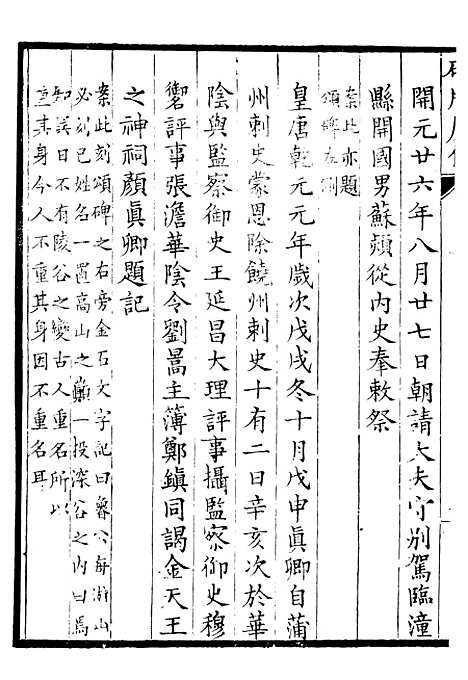 開元廿六年八月廿七日朝請大夫守別駕臨潼
縣開國男蘇頲從內史奉敕祭
案此亦題
頌碑左側
皇唐乾元元年歲次戊戌冬十月戊申眞卿自蒲
州刺史蒙恩除饒州刺史十有二日辛亥次於華
陰與監察御史王延昌大理評事攝監察御史穆
寧評事張澹華陰令劉暠主簿鄭鎮同謁金天王
之神祠顏眞卿題記
案此刻頌碑之右旁金石文字記曰魯公每游山
必刻己姓名一置高山之巓一投深谷之內曰焉
知異日不有陵谷之變古人重名所以
重其身今人不重其身因不重名耳